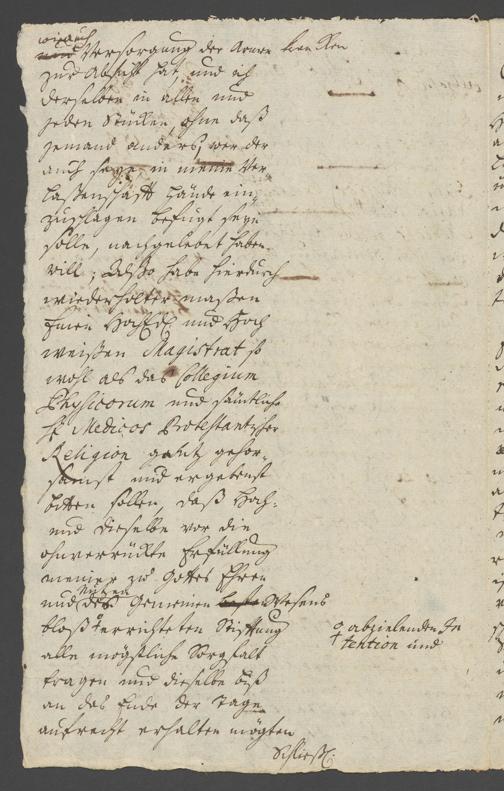 wie auch
Versorgung der Armen Krancken
zur Absicht hat, und ich
derselben in allen und
jeden Stücken, ohne daß
jemand anders, wer der
auch seye, in meine Ver-
laßenschafft Hände ein-
zuschlagen befugt seyn
solle, nachgelebet haben
will; Also habe hierdurch
wiederholter maßen
Einen HochEdl. und Hoch
weißen Magistrat so
wohl als das Collegium
Physicorum und sämtliche
H. Medicos Protestantischer
Religion gantz gehor-
samst und ergebenst
bitten sollen, daß Hoch-
und dieselbe vor die
ohnverrückte Erfüllung
meiner zu Gottes Ehren
und des Nutzen Gemeinen Wesens
bloß errichteten Stifftung
abzielenden In
tention und
alle mögliche Sorgfalt
tragen und dieselbe biß
an das Ende der Tage
aufrecht erhalten mögten
Schließl.